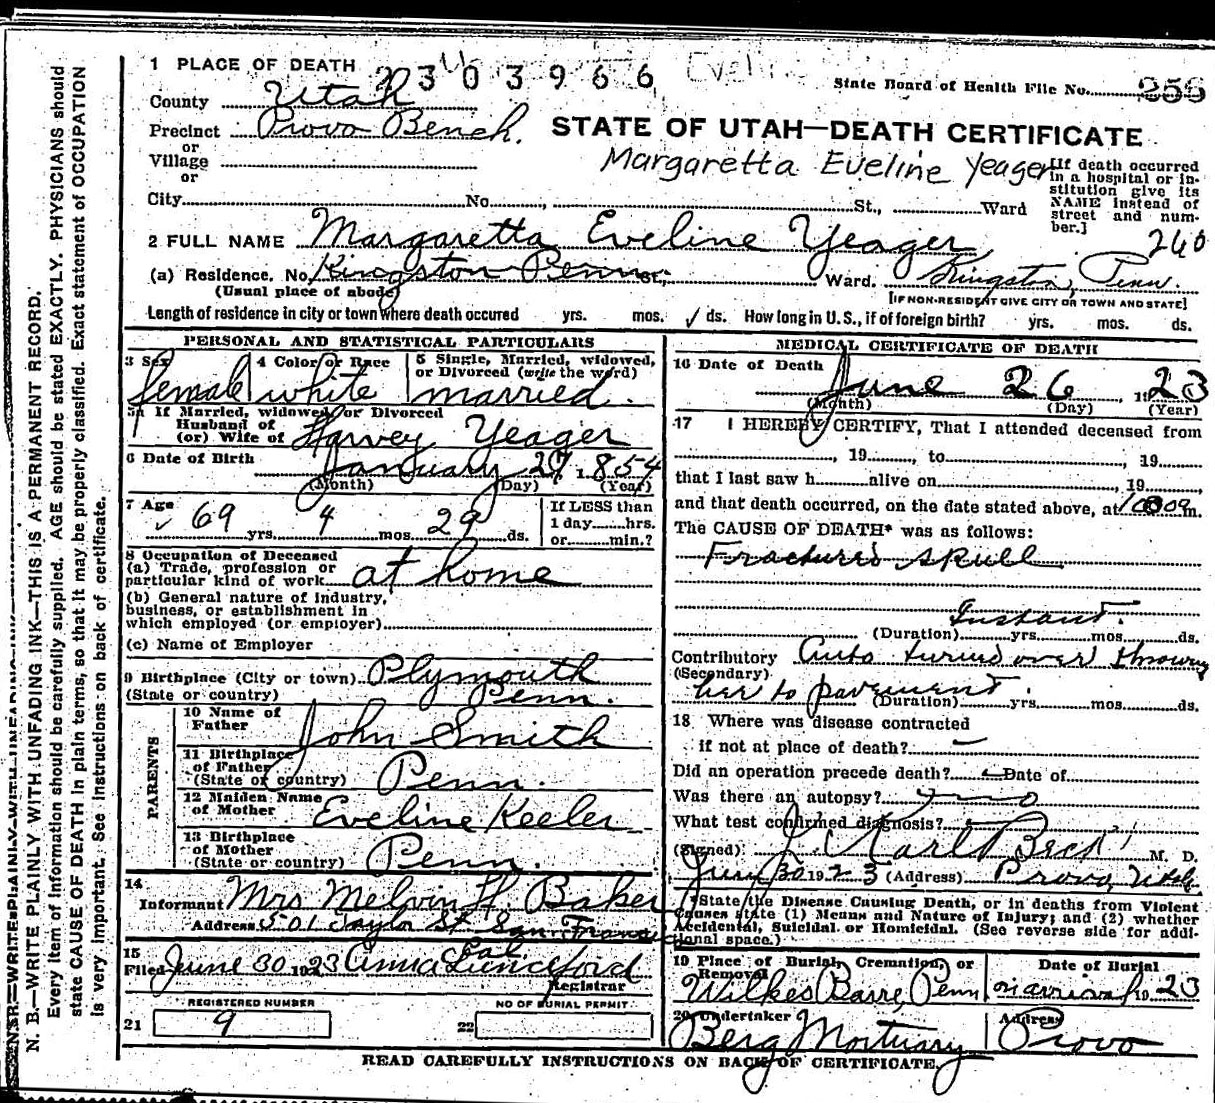 1 PLACE OF DEATH 2303966 Eveline
State Board of Health File No. 259
County Utah
Precinct Provo Bench.
or
Village
or
City No. St., Ward
STATE OF UTAH—DEATH CERTIFICATE
Margaretta Eveline Yeager
[If death occurred in a hospital or institution give its NAME instead of street and number.]
260
2 FULL NAME Margaretta Eveline Yeager
(a) Residence. No. Kingston Penn. St., Ward. Kingston, Penn.
(Usual place of abode) [IF NON-RESIDENT GIVE CITY OR TOWN AND STATE]
Length of residence in city or town where death occured yrs. mos. ✓ ds. How long in U.S., if of foreign birth? yrs. mos. ds.
PERSONAL AND STATISTICAL PARTICULARS
3 Sex 4 Color or Race 5 Single, Married, widowed, or Divorced (write the word)
female white married.
5a If Married, widowed, or Divorced
Husband of
(or) Wife of Harvey Yeager
6 Date of Birth January 27, 1854
(Month) (Day) (Year)
7 Age 69 yrs. 4 mos. 29 ds.
If LESS than
1 day hrs.
or min.?
8 Occupation of Deceased
(a) Trade, profession or
particular kind of work at home
(b) General nature of industry,
business, or establishment in
which employed (or employer)
(c) Name of Employer
9 Birthplace (City or town) Plymouth
(State or country) Penn.
PARENTS
10 Name of Father John Smith
11 Birthplace of Father
(State or country) Penn.
12 Maiden Name of Mother Eveline Keeler
13 Birthplace of Mother
(State or country) Penn.
14
Informant Mrs Melvin H Baker
Address 501 Taylor St. San Francis
Cal
15
Filed June 30 1923 Anna Lunceford
Registrar
REGISTERED NUMBER NO OF BURIAL PERMIT
21 9 22
MEDICAL CERTIFICATE OF DEATH
16 Date of Death
June 26, 1923
(Month) (Day) (Year)
17 I HEREBY CERTIFY, That I attended deceased from
, 19 , to , 19
that I last saw h alive on , 19
and that death occurred, on the date stated above, at m.
The CAUSE OF DEATH* was as follows:
Fractured skull
Instant.
(Duration) yrs. mos. ds.
Contributory Auto turned over throwing
(Secondary) her to pavement.
(Duration) yrs. mos. ds.
18 Where was disease contracted
if not at place of death? —
Did an operation precede death? Date of
Was there an autopsy? no
What test confirmed diagnosis?
(Signed) J. Karl Beck M. D.
June 30 1923 (Address) Provo, Utah
*State the Disease Causing Death, or in deaths from Violent
Causes state (1) Means and Nature of Injury; and (2) whether
Accidental, Suicidal or Homicidal. (See reverse side for addi-
tional space.)
19 Place of Burial, Cremation, or Removal Date of Burial
Wilkes Barre, Penn on arrival 1923
20 Undertaker Address
Berg Mortuary Provo
READ CAREFULLY INSTRUCTIONS ON BACK OF CERTIFICATE.
N. B.—WRITE PLAINLY WITH UNFADING INK—THIS IS A PERMANENT RECORD.
Every item of information should be carefully supplied. AGE should be stated EXACTLY. PHYSICIANS should
state CAUSE OF DEATH in plain terms, so that it may be properly classified. Exact statement of OCCUPATION
is very important. See instructions on back of certificate.